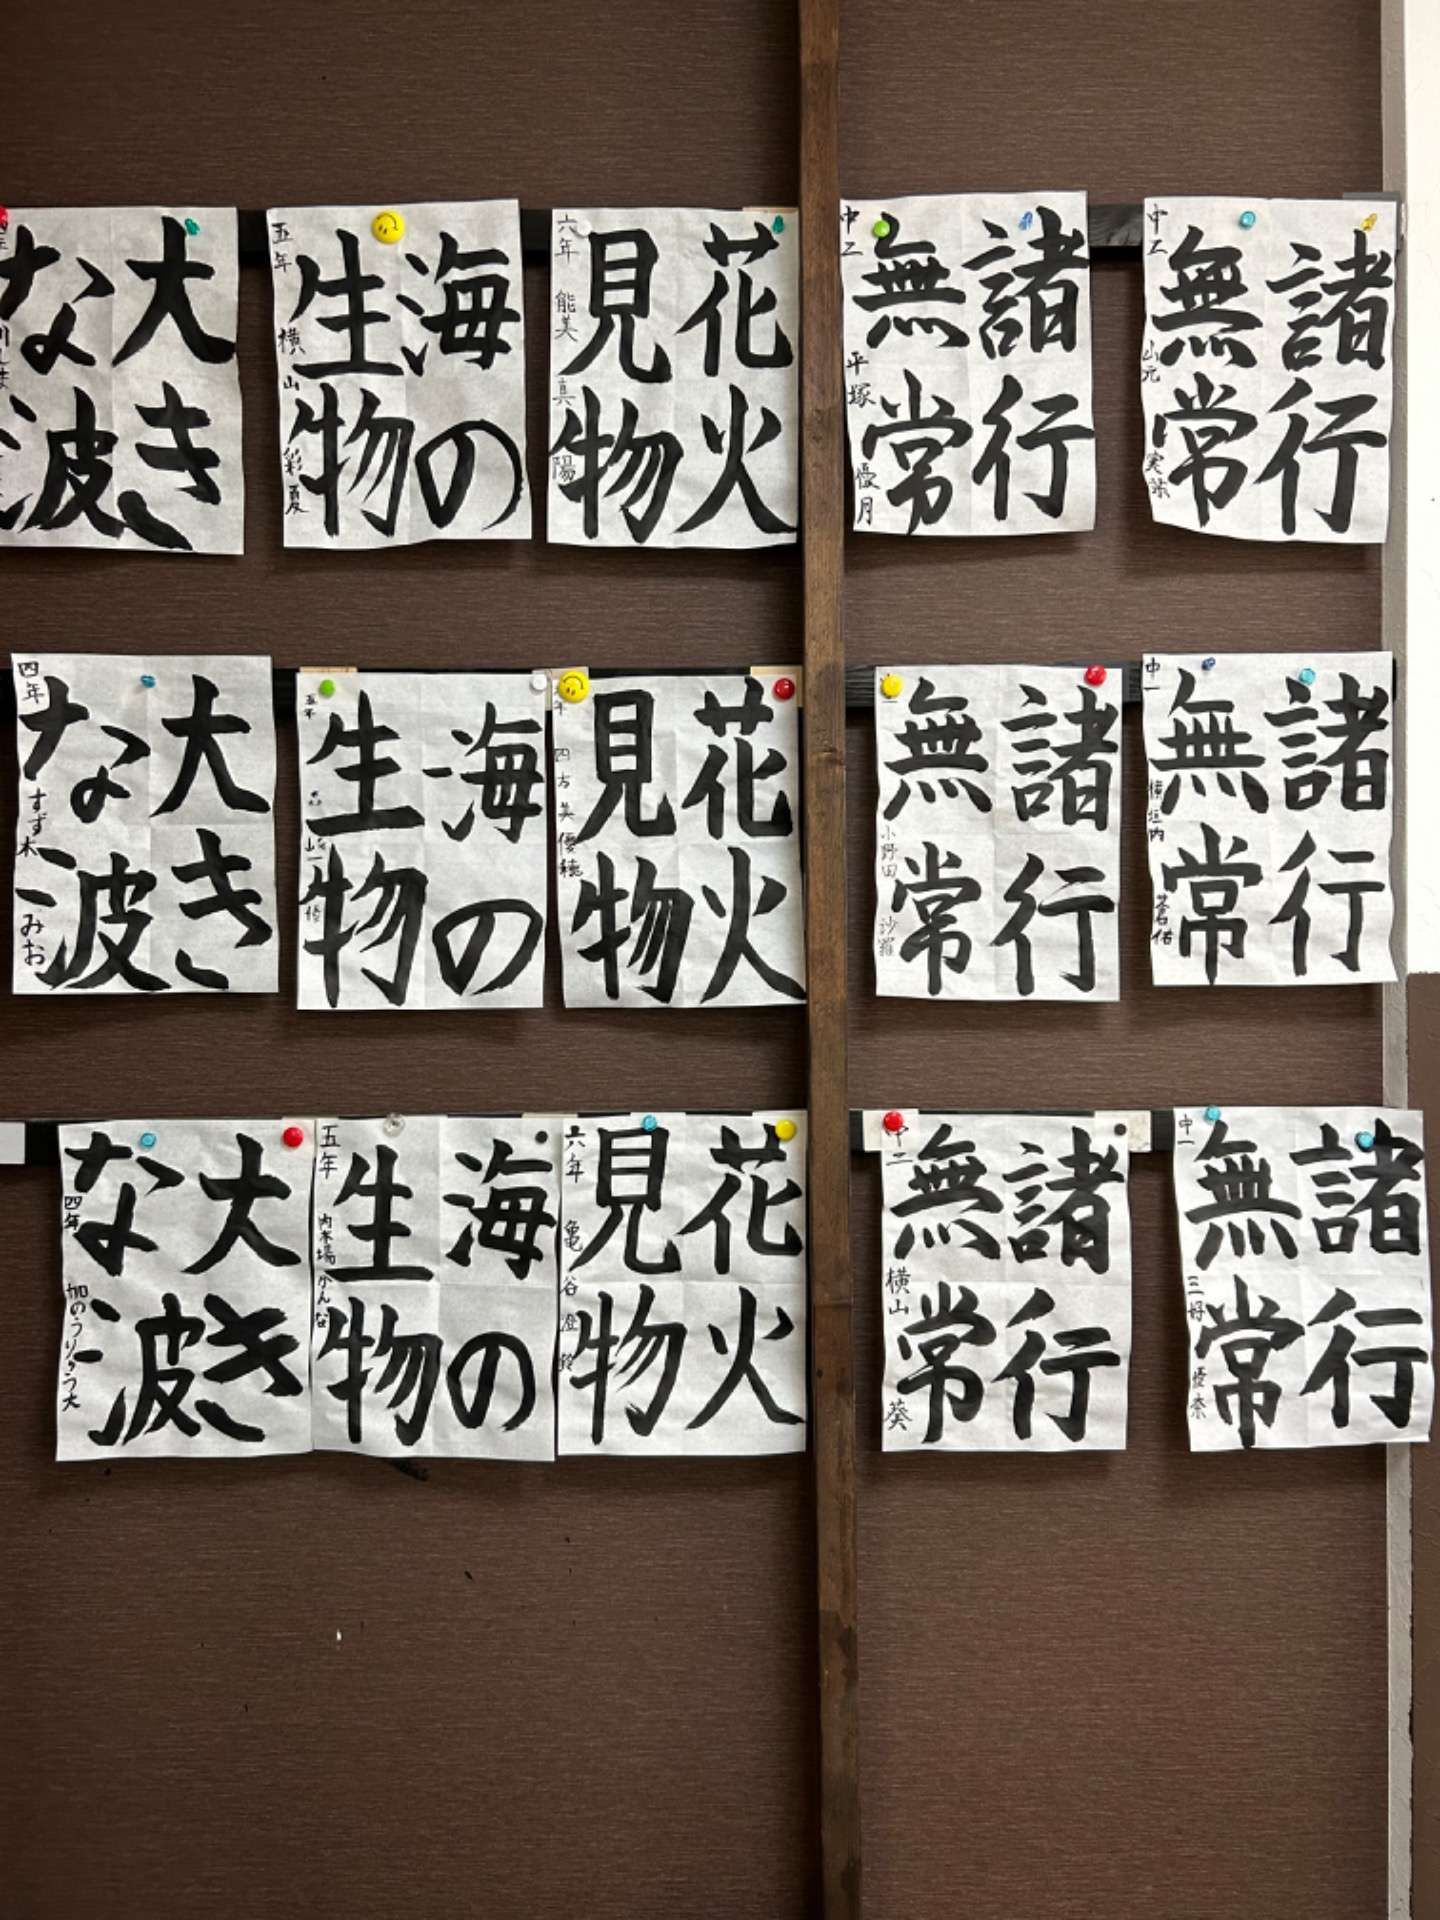 諸行
無常
中二
山元
諸行
無常
中二
平塚 優月
花火
見物
六年
能美 真陽
海の
生物
五年
横山 彩夏
大き
な波
諸行
無常
中一
横垣内 蒼佑
諸行
無常
小野田 沙羅
花火
見物
四方 美優穂
海の
生物
五年
大き
な波
四年
すず木 みお
諸行
無常
中一
三好 優奈
諸行
無常
中二
横山 葵
花火
見物
六年
亀谷 澄鈴
海の
生物
五年
内木場 かんな
大き
な波
四年
加のうりゅう大